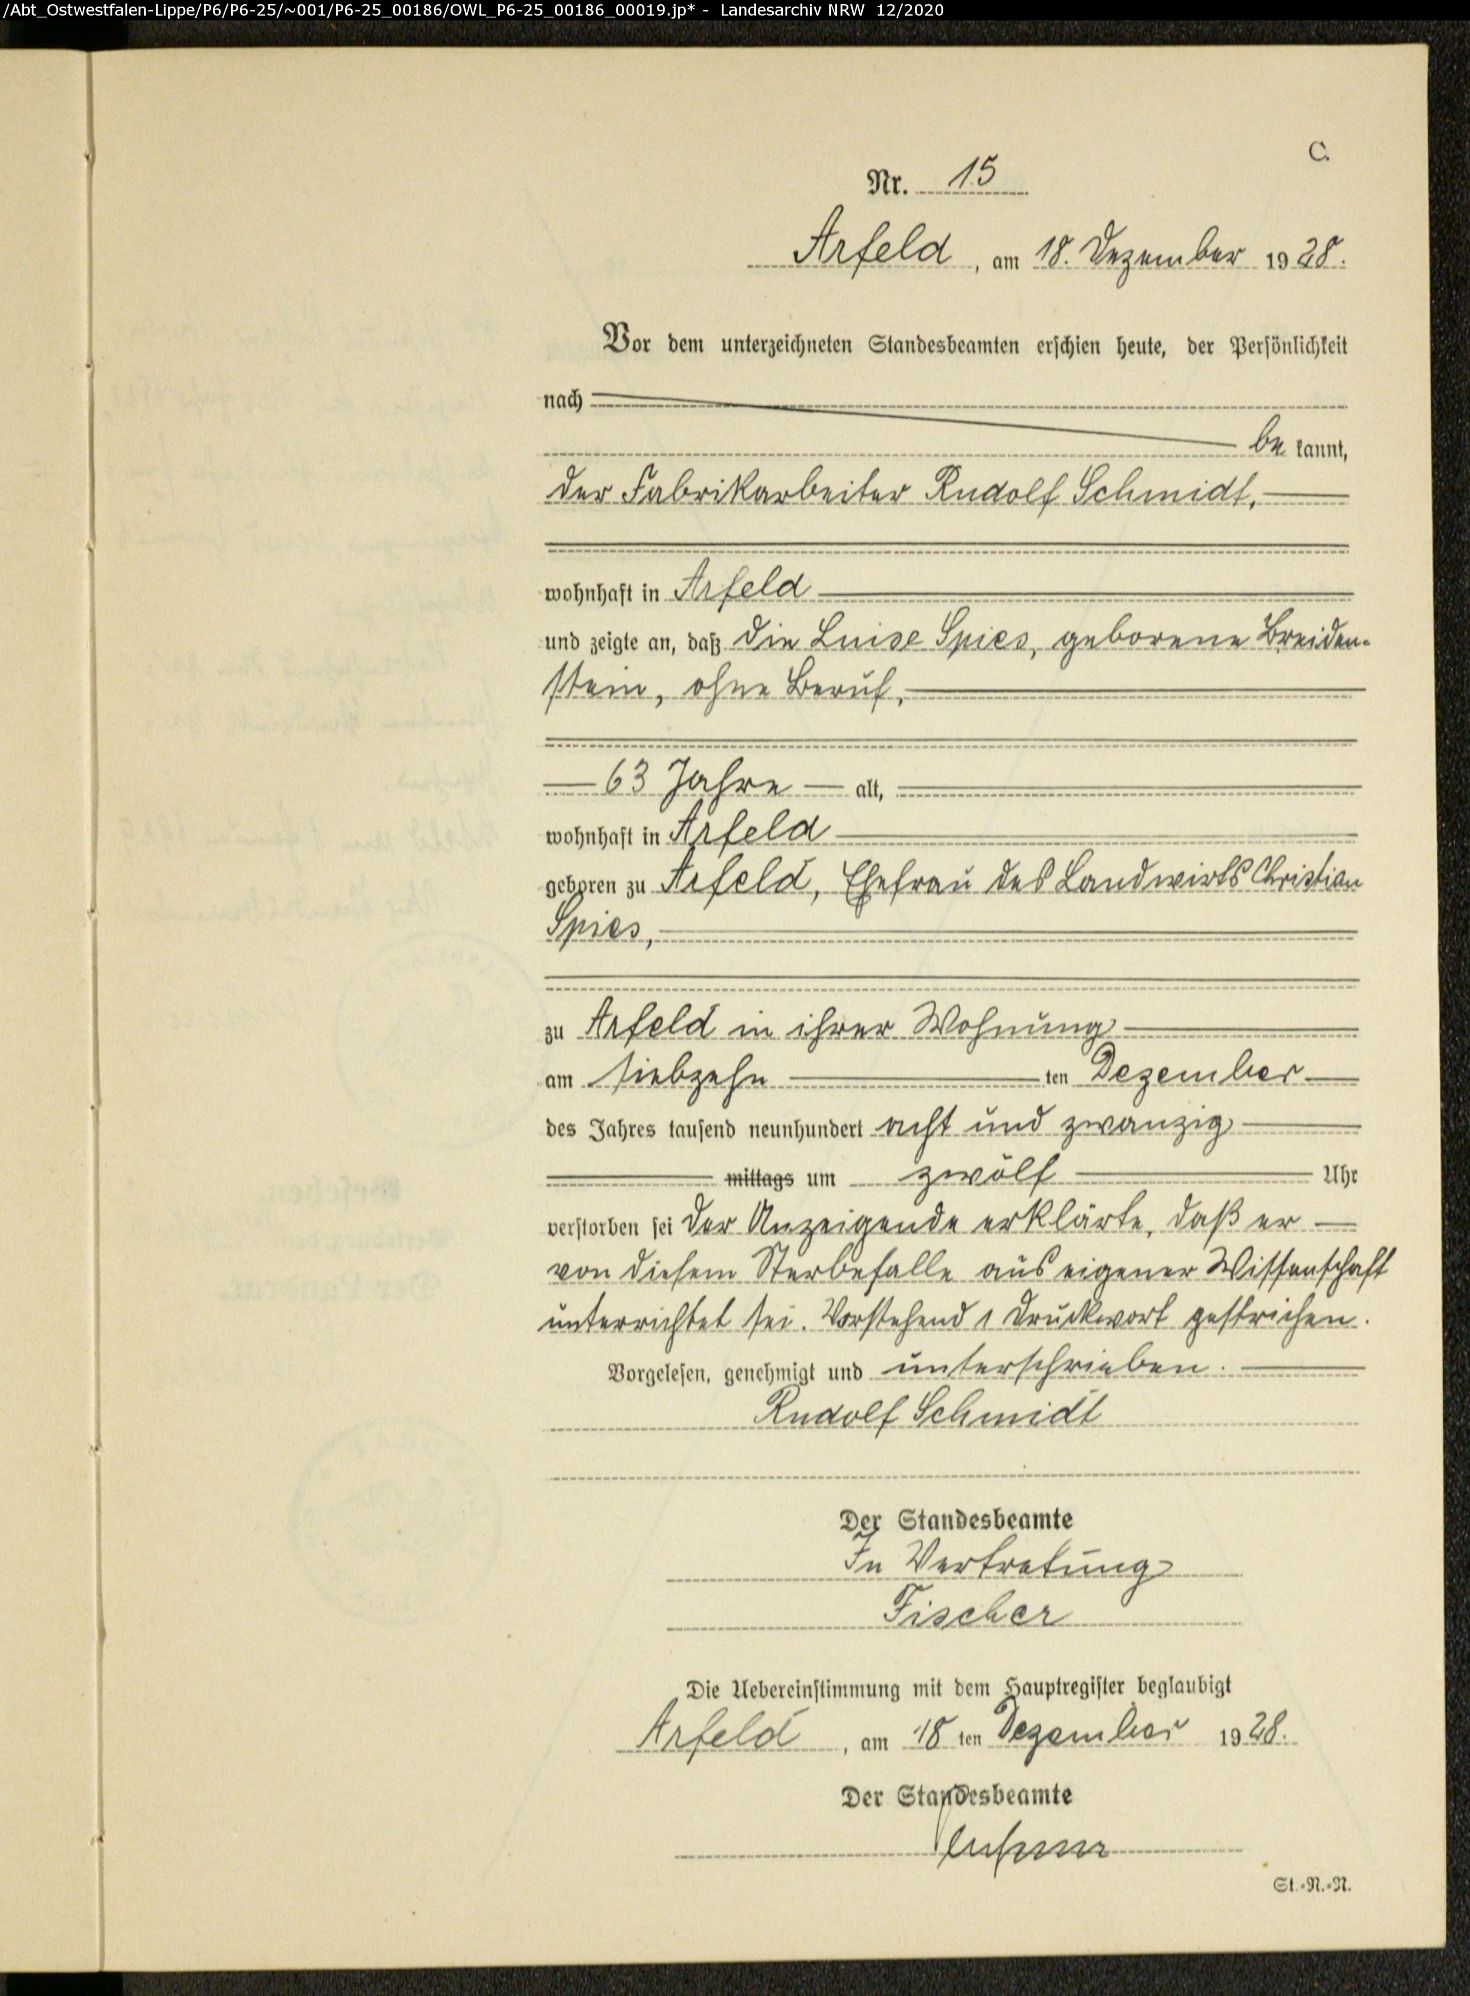 /Abt_Ostwestfalen-Lippe/P6/P6-25/~001/P6-25_00186/OWL_P6-25_00186_00019.jp* - Landesarchiv NRW 12/2020
C.
Nr. 15
Arfeld, am 18. Dezember 1928.
Vor dem unterzeichneten Standesbeamten erschien heute, der Persönlichkeit
nach
be kannt,
der Fabrikarbeiter Rudolf Schmidt,
wohnhaft in Arfeld
und zeigte an, daß die Luise Spies, geborene Breiden-
stein, ohne Beruf,
63 Jahre alt,
wohnhaft in Arfeld
geboren zu Arfeld, Ehefrau des Landwirts Christian
Spies,
zu Arfeld in ihrer Wohnung
am siebzehn ten Dezember
des Jahres tausend neunhundert acht und zwanzig
mittags um zwölf Uhr
verstorben sei der Anzeigende erklärte, daß er
von diesem Sterbefalle aus eigener Wissenschaft
unterrichtet sei. Vorstehend 1 Druckwort gestrichen.
Vorgelesen, genehmigt und unterschrieben.
Rudolf Schmidt
Der Standesbeamte
In Vertretung
Fischer
Die Uebereinstimmung mit dem Hauptregister beglaubigt
Arfeld, am 18 ten Dezember 1928.
Der Standesbeamte
St.-N.-N.